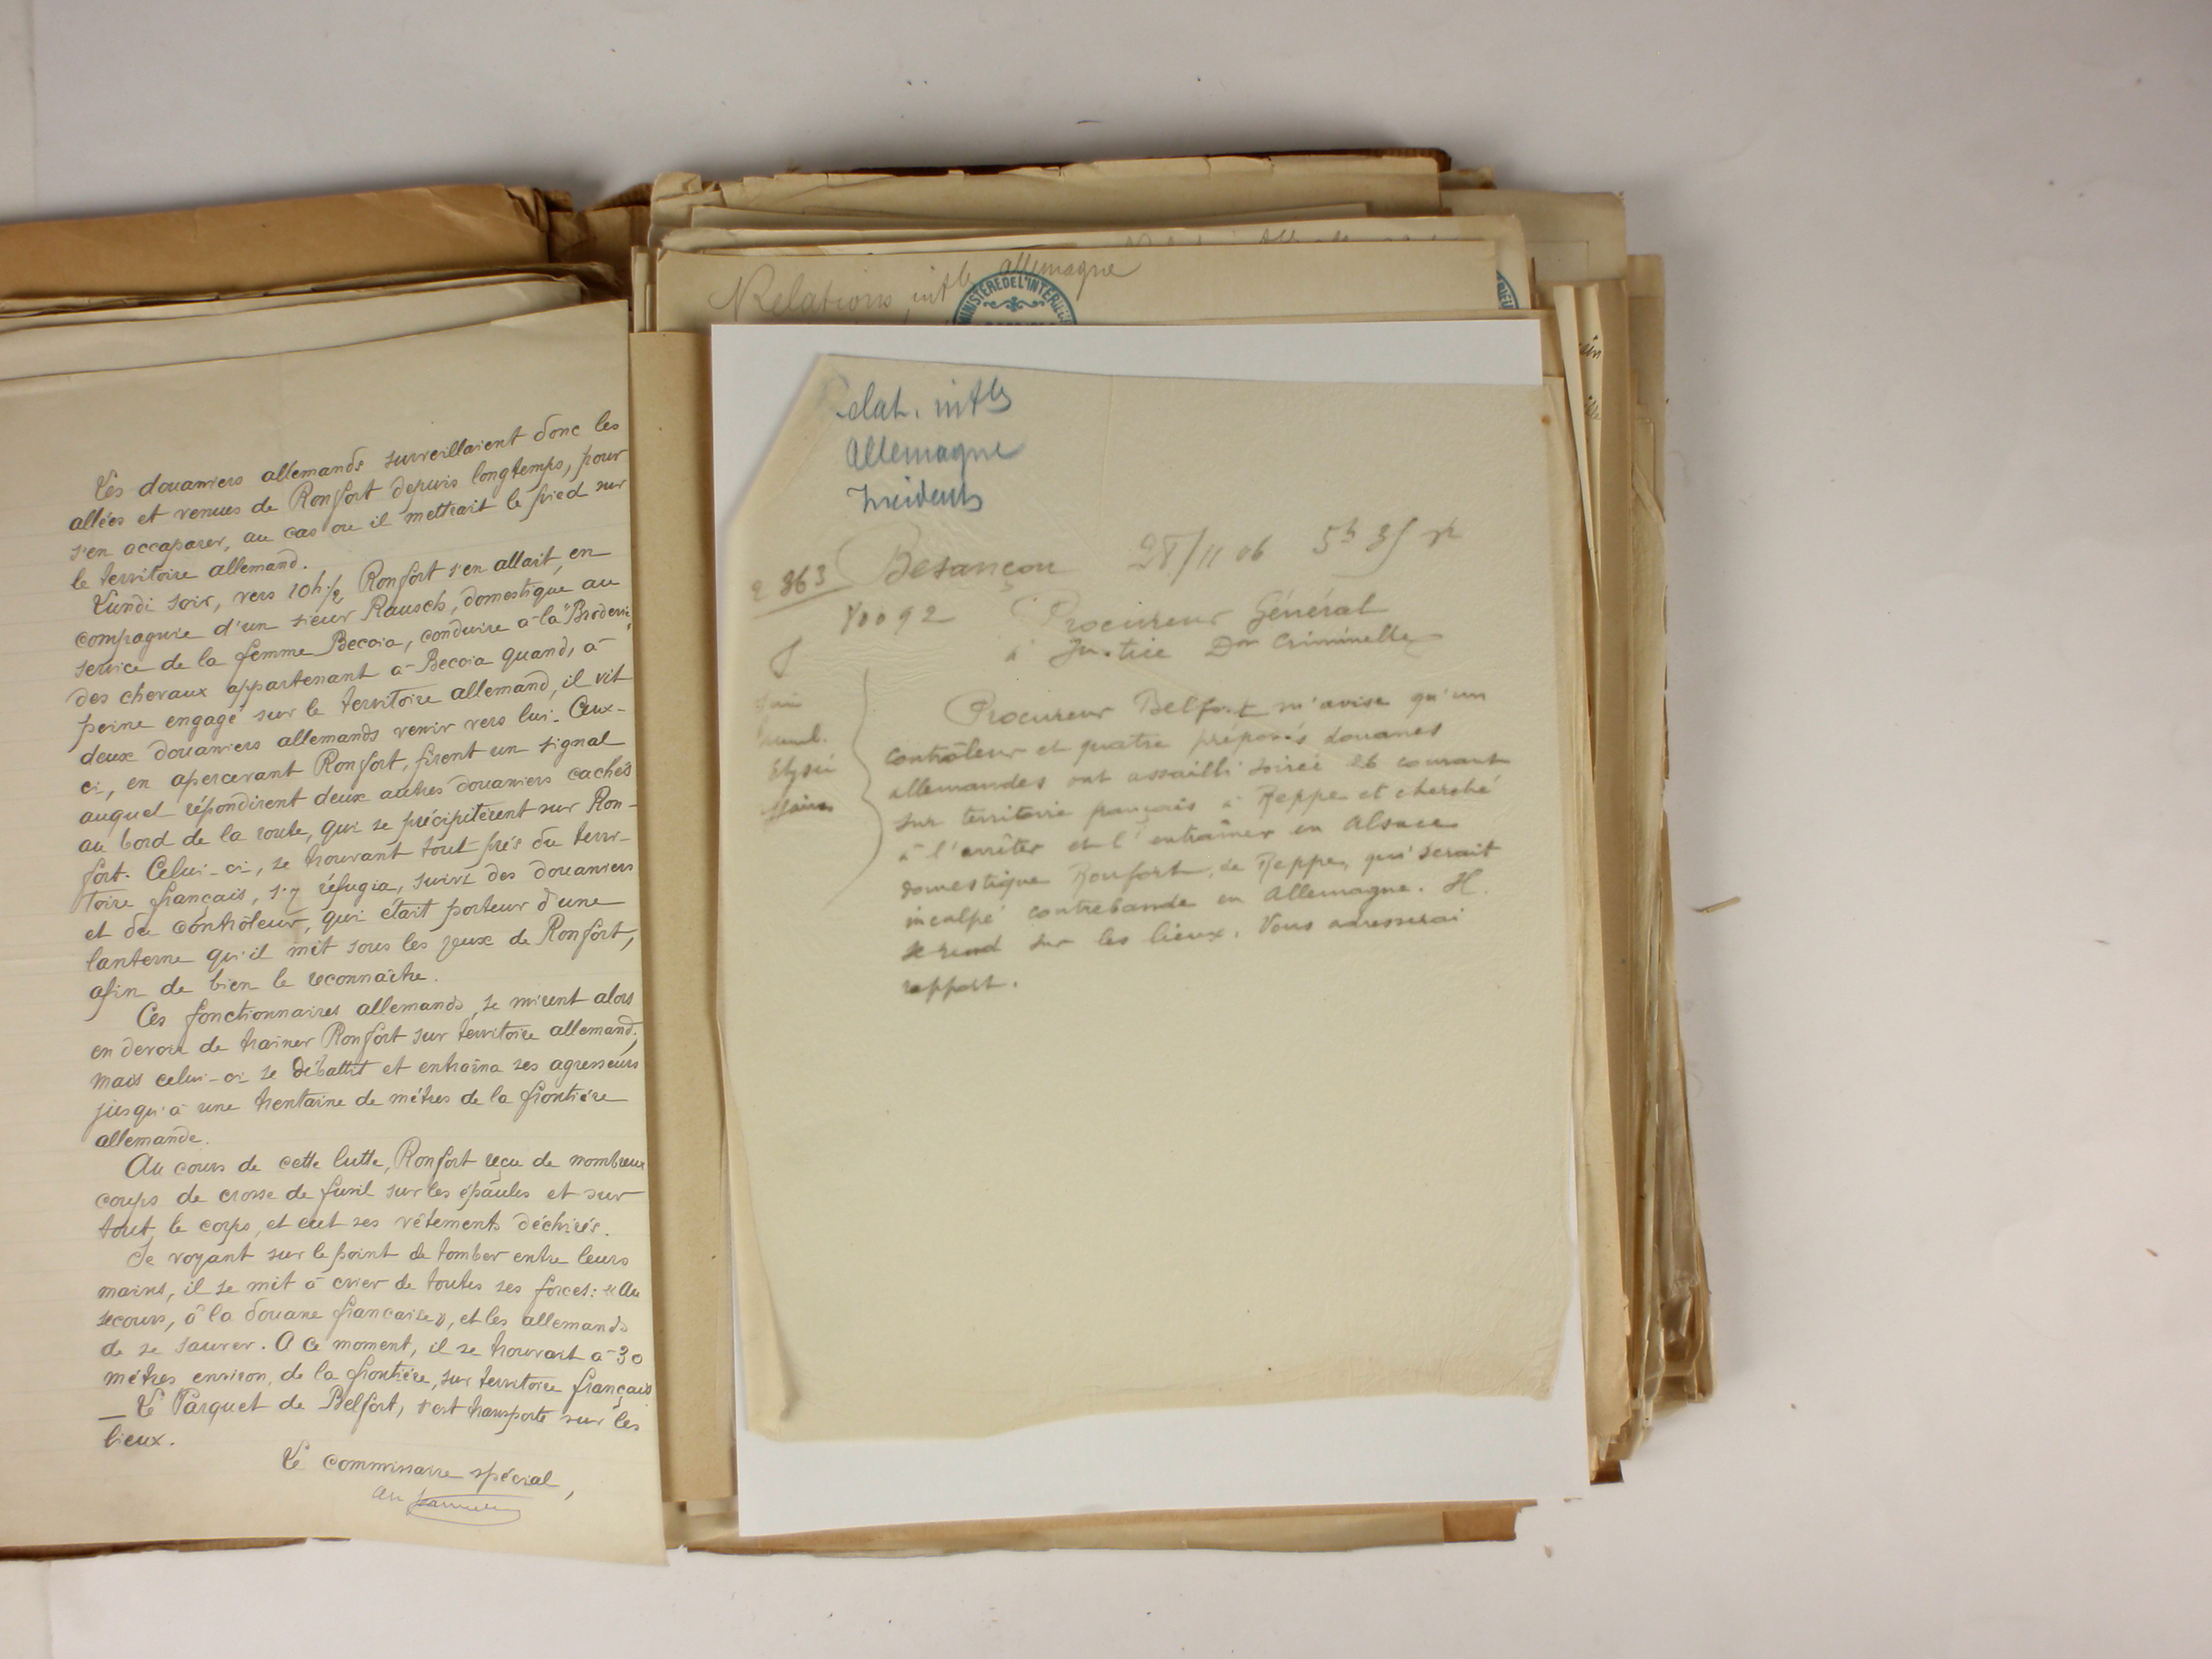 Les douaniers allemands surveillaient donc les
allées et venues de Ronfort depuis longtemps, pour
s'en accaparer, au cas ou il mettrait le pied sur
le territoire allemand.
Lundi soir, vers 10h 1/2 Ronfort s'en allait, en
compagnie d'un sieur Rausch, domestique au
service de la femme Becoia, conduire à la "Broderie"
des chevaux appartenant à Becoia quand, à
peine engagé sur le territoire allemand, il vit
deux douaniers allemands venir vers lui. Ceux-
ci, en apercevant Ronfort, firent un signal
auquel répondirent deux autres douaniers cachés
au bord de la route, qui se précipitèrent sur Ron-
fort. Celui-ci, se trouvant tout près du terri-
toire français, s'y réfugia, suivi des douaniers
et du contrôleur, qui était porteur d'une
lanterne qu'il mit sous les yeux de Ronfort,
afin de bien le reconnaître.
Ces fonctionnaires allemands, se mirent alors
en devoir de trainer Ronfort sur territoire allemand;
mais celui-ci se débattit et entraîna ses agresseurs
jusqu'à une trentaine de mètres de la frontière
allemande.
Au cours de cette lutte, Ronfort reçu de nombreux
coups de crosse de fusil sur les épaules et sur
tout le corps, et eut ses vêtements déchirés.
Se voyant sur le point de tomber entre leurs
mains, il se mit à crier de toutes ses forces: "Au
secours, à la douane française", et les allemands
de se sauver. A ce moment, il se trouvait à 30
mètres environ, de la frontière, sur territoire français
_ Le Parquet de Belfort, s'est transporté sur les
lieux.
Le commissaire spécial,
Relations intles allemagne
MINISTERE DE L'INTERIEUR
Relat. intles
Allemagne
Incidents
2363 Besançon 28/11 06 5h 35
80092 Procureur Général
à Justice Don Criminelle
Elysée
Procureur Belfort m'avise qu'un
contrôleur et quatre préposés douanes
allemandes ont assailli soirée 26 courant
sur territoire français à Reppe et cherché
à l'arrêter et l'entraîner en Alsace
domestique Ronfort, de Reppe, qui serait
inculpé contrebande en Allemagne. Il
se rend sur les lieux. Vous adresserai
rapport.